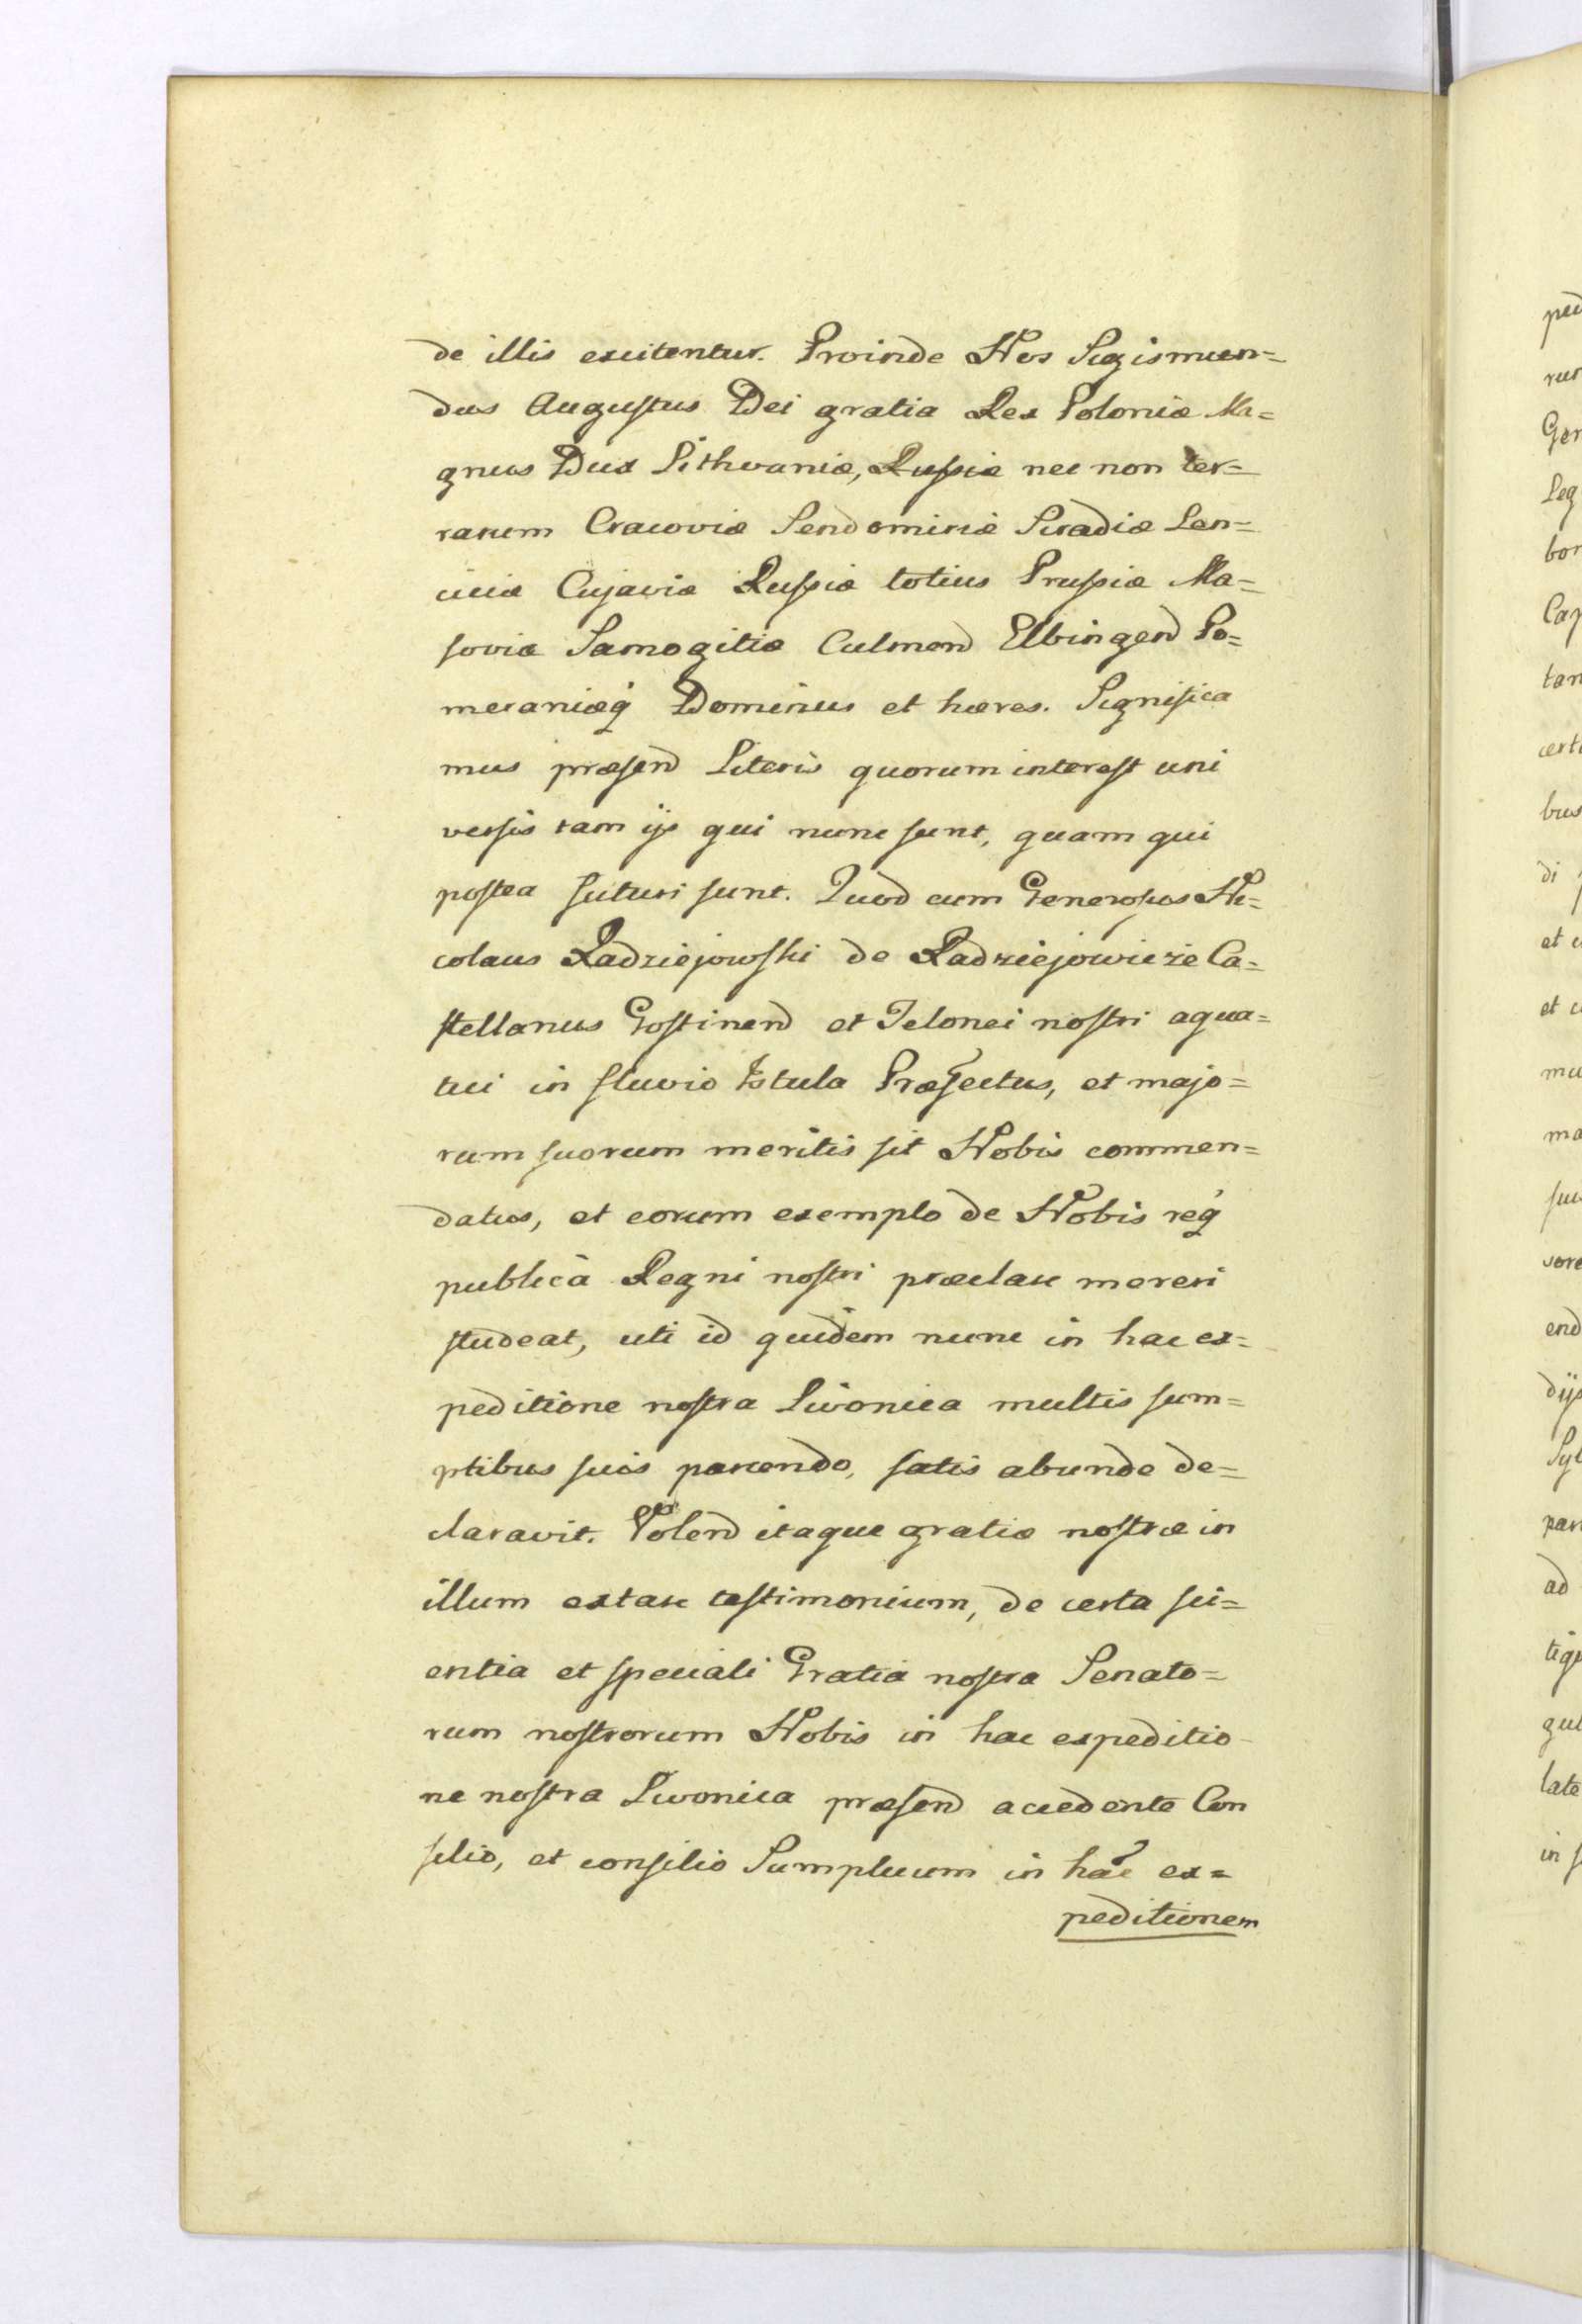 de illis excitentur. Proinde Nos Sigismun=
dus Augustus Dei gratia Rex Poloniæ Ma=
gnus Dux Lithvaniæ, Russiæ nec non ter=
rarum Cracoviæ Sendomiriæ Siradiæ Len=
ciciæ Cujaviæ Russiæ totius Prussiæ Ma=
soviæ Samogitiæ Culmen̄ Elbingen̄ Po=
meraniæq́ Dominus et hæres. Significa
mus præsen̄ Literis quorum interest uni
versis tam ijs qui nunc sunt, quam qui
postea futuri sunt. Quod cum Generosus Ni=
colaus Radziejowski de Radziejowicze Ca=
stellanus Gostinen̄ et Telonei nostri aqua=
tici in fluvio Istula Præfectus, et majo=
rum suorum meritis sit Nobis commen=
datus, et eorum exemplo de Nobis req́
publicà Regni nostri præclare mereri
studeat, uti id quidem nunc in hac ex=
peditione nostra Livonica multis sum=
ptibus suis parcendo, satis abunde de=
claravit. Volen̄ itaque gratiæ nostræ in
illum extare testimonium, de certa sci=
entia et speciali Gratia nostra Senato=
rum nostrorum Nobis in hac expeditio-
ne nostra Livonica præsen̄ accedente Con
silio, et consilio Sumptuum in hac ex=
peditionem
pe
rur
Ger
Leg
bor
Cap
tan
certi
bus
di
et
et
mu
ma
su
vore
end
dijs
Syl
par
ad
tiq
gul
late
in